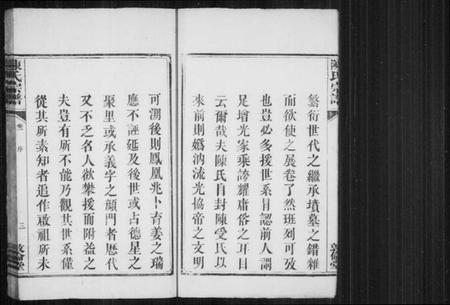 陳氏宗譜
繁衍世代之繼承墳墓之錯雜
而欲使之展卷了然班列可攷
也豈必多援世系冒認前人謂
足增光家乘誇耀庸俗之耳目
云爾哉夫陳氏自封陳受氏以
來前則嬀汭流光協帝之文明
可溯後則鳳凰兆卜育姜之瑞
應不誣延及後世或占德星之
聚里或承義字之顏門者歷代
又不乏名人欲攀援而附益之
夫豈有所不能乃觀其世系僅
從其所素知者追作敵祖所未
陳氏宗譜
序
三